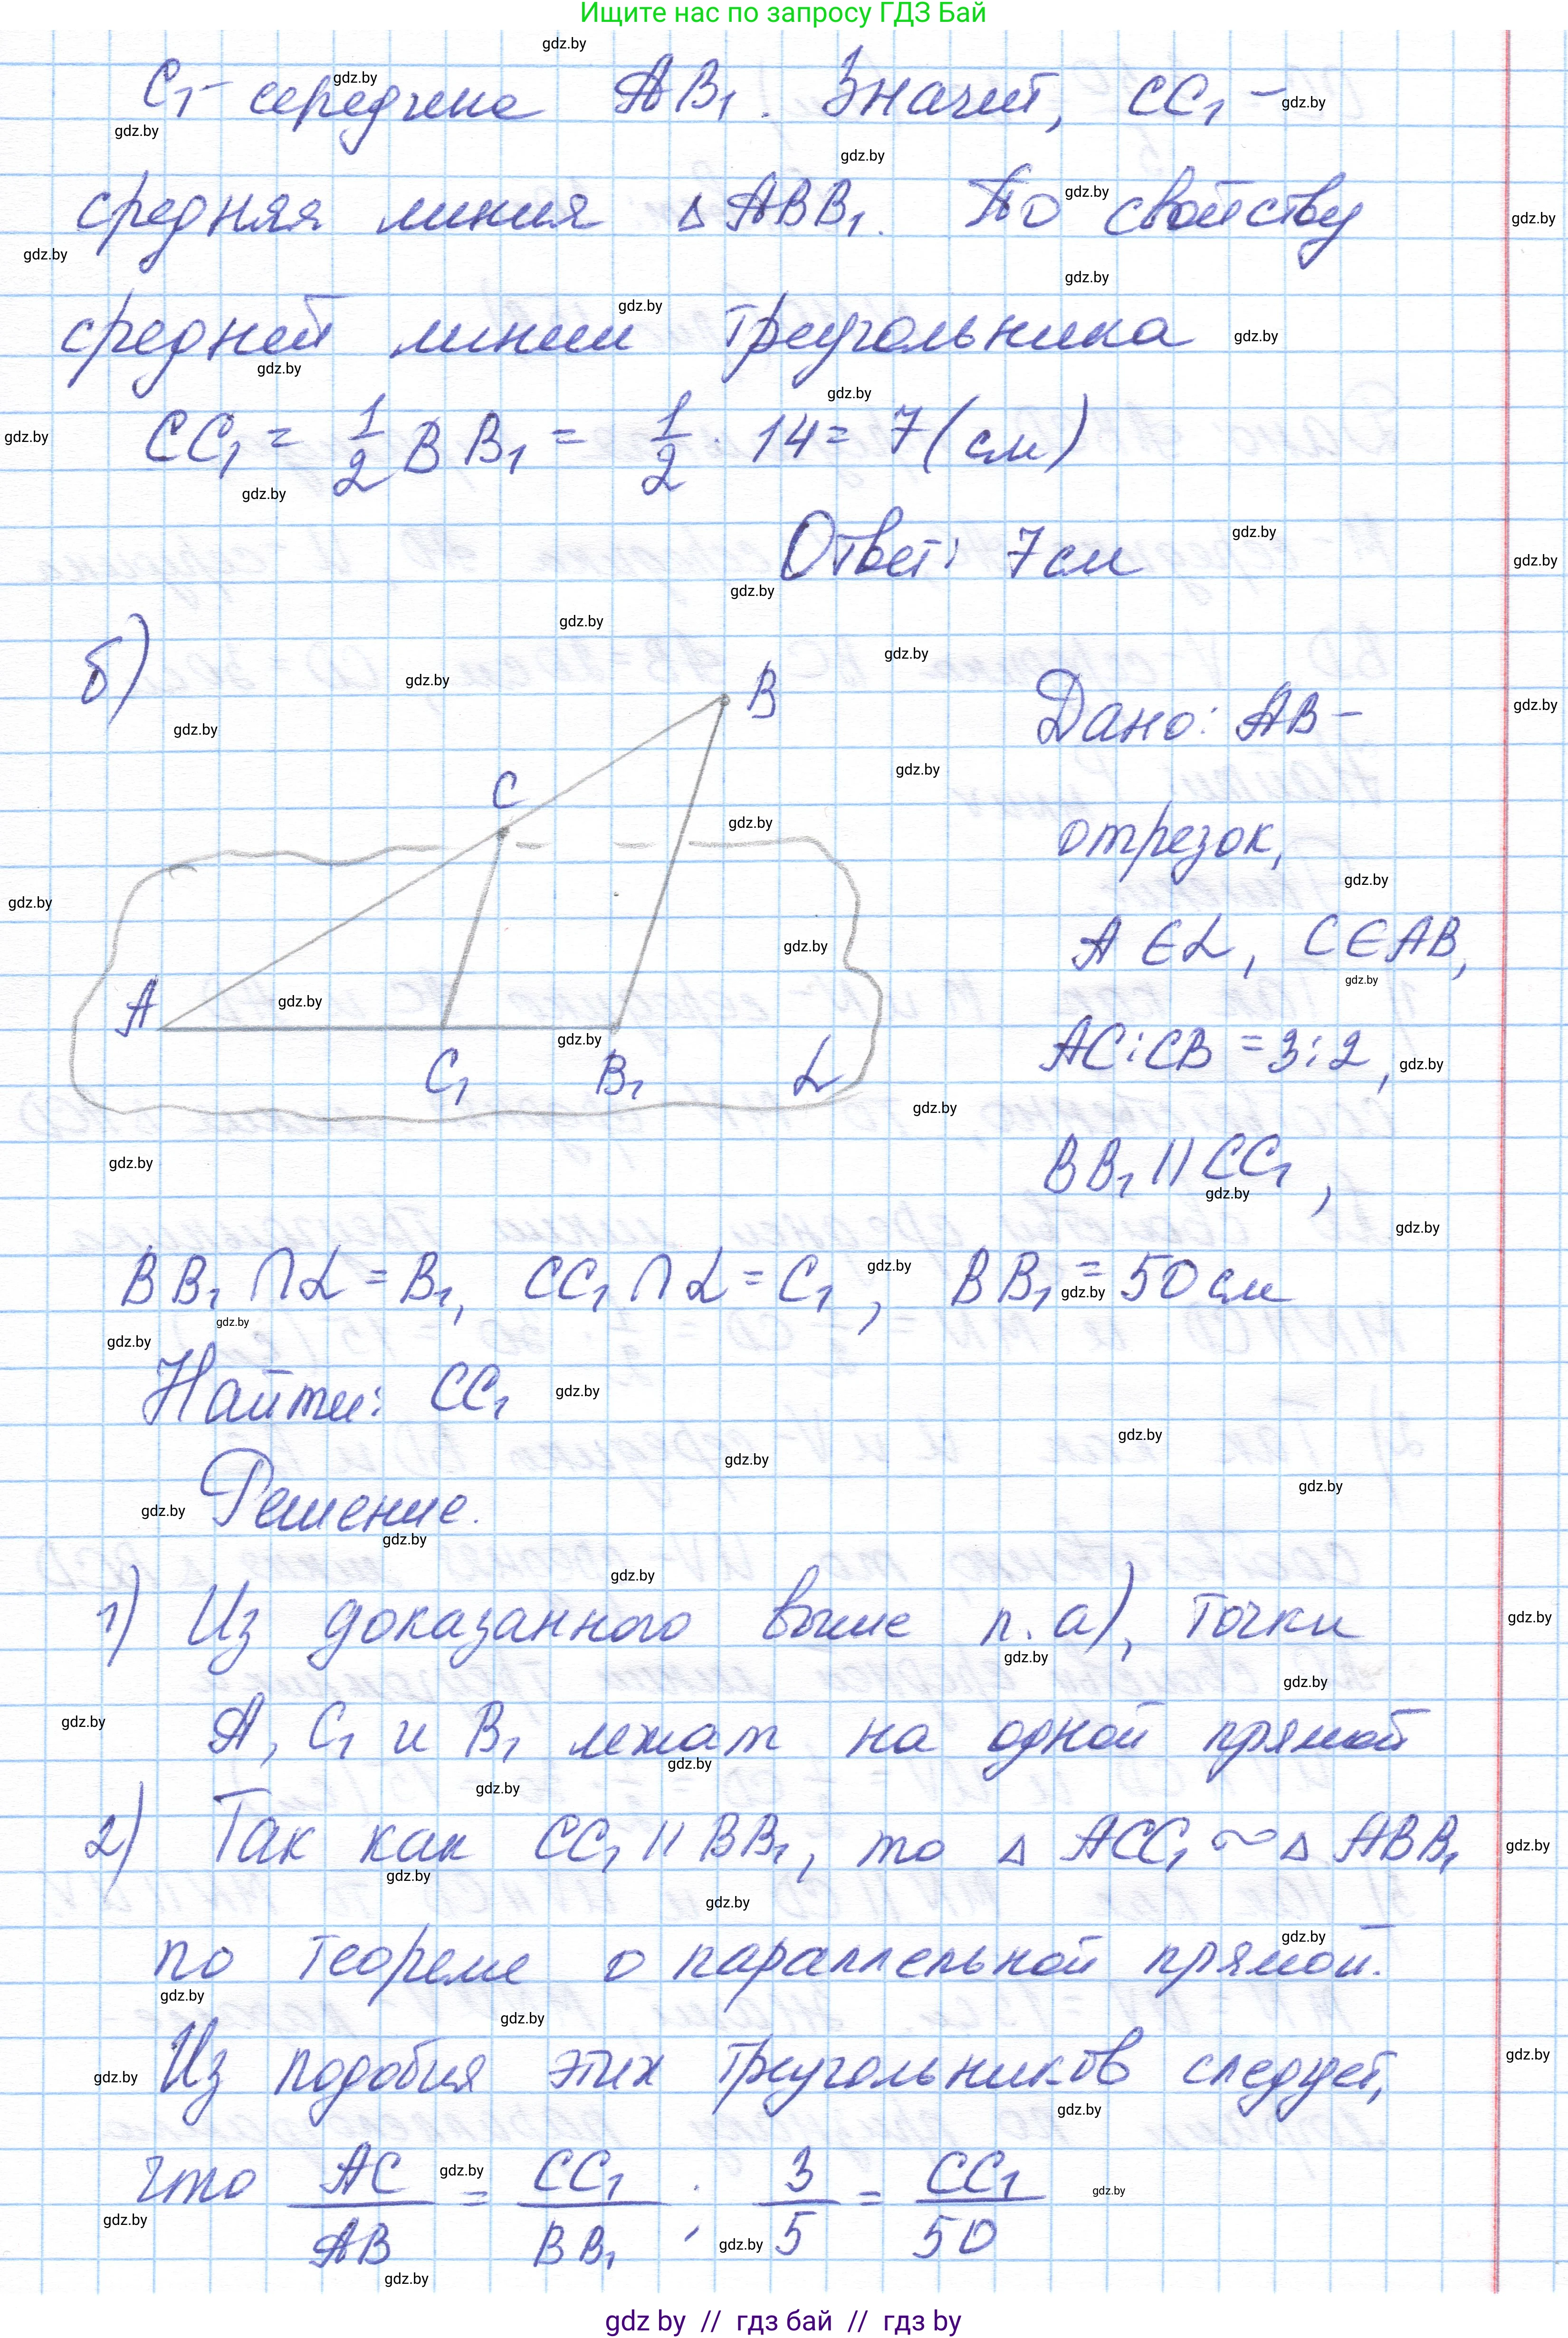 Ищите нас по запросу ГДЗ Бай
C₁ - середина AB₁. Значит, CC₁ -
средняя линия △ABB₁. По свойству
средней линии треугольника
CC₁ = 1/2 BB₁ = 1/2 · 14 = 7 (см)
Ответ: 7 см
б)
B
C
A
C₁
B₁
α
Дано: AB -
отрезок,
A ∈ α, C ∈ AB,
AC : CB = 3 : 2,
BB₁ || CC₁,
BB₁ ∩ α = B₁, CC₁ ∩ α = C₁, BB₁ = 50 см
Найти: CC₁
Решение.
1) Из доказанного выше п. а), точки
A, C₁ и B₁ лежат на одной прямой
2) Так как CC₁ || BB₁, то △ ACC₁ ~ △ ABB₁
по теореме о параллельной прямой.
Из подобия этих треугольников следует,
что AC/AB = CC₁/BB₁; 3/5 = CC₁/50
gdz by // гдз бай // гдз by